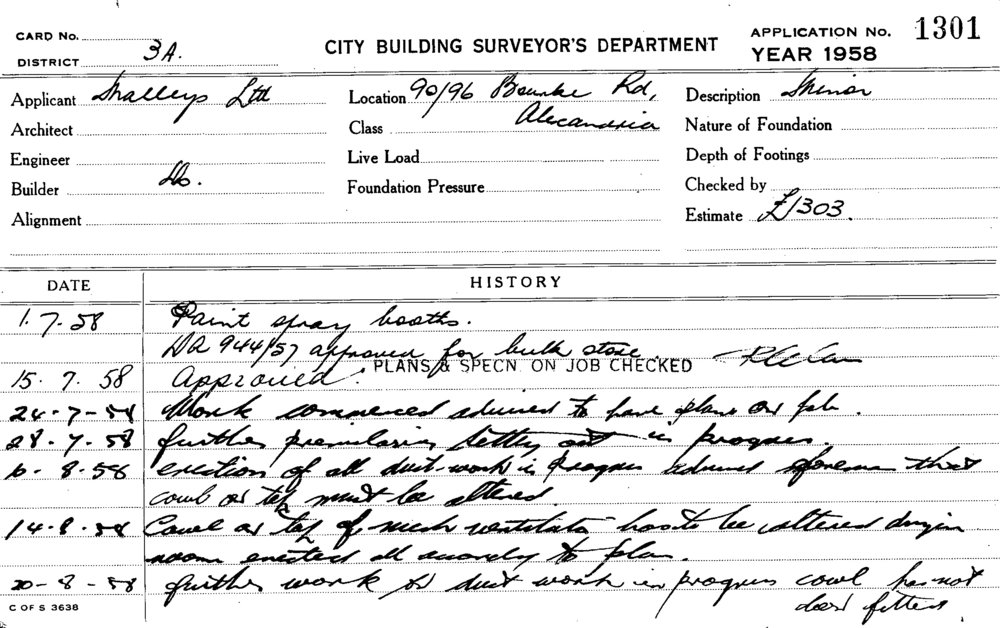 CARD No.
DISTRICT 3A.
CITY BUILDING SURVEYOR'S DEPARTMENT
APPLICATION No. 1301
YEAR 1958
Applicant Malleys Ltd
Location 90/96 Bourke Rd,
Alexandria
Description Minor
Architect
Class
Nature of Foundation
Engineer
Live Load
Depth of Footings
Builder Do.
Foundation Pressure
Checked by
Alignment
Estimate £1303.
DATE HISTORY
1.7.58 Paint spray booths.
DA 944/57 approved for bulk store.
PLANS & SPECN. ON JOB CHECKED
15.7.58 Approved.
24-7-58 Work commenced advised to have plans on job.
28.7.58 further preliminaries setting out in progress.
6-8-58 erection of all duct-work in progress advised foreman that
cowl on top must be altered
14.8.58 Cowl on top of mech ventilator has to be altered drying
room erected all accordy to plan.
20-8-58 further work to duct work in progress cowl has not
been fitted
C OF S 3638